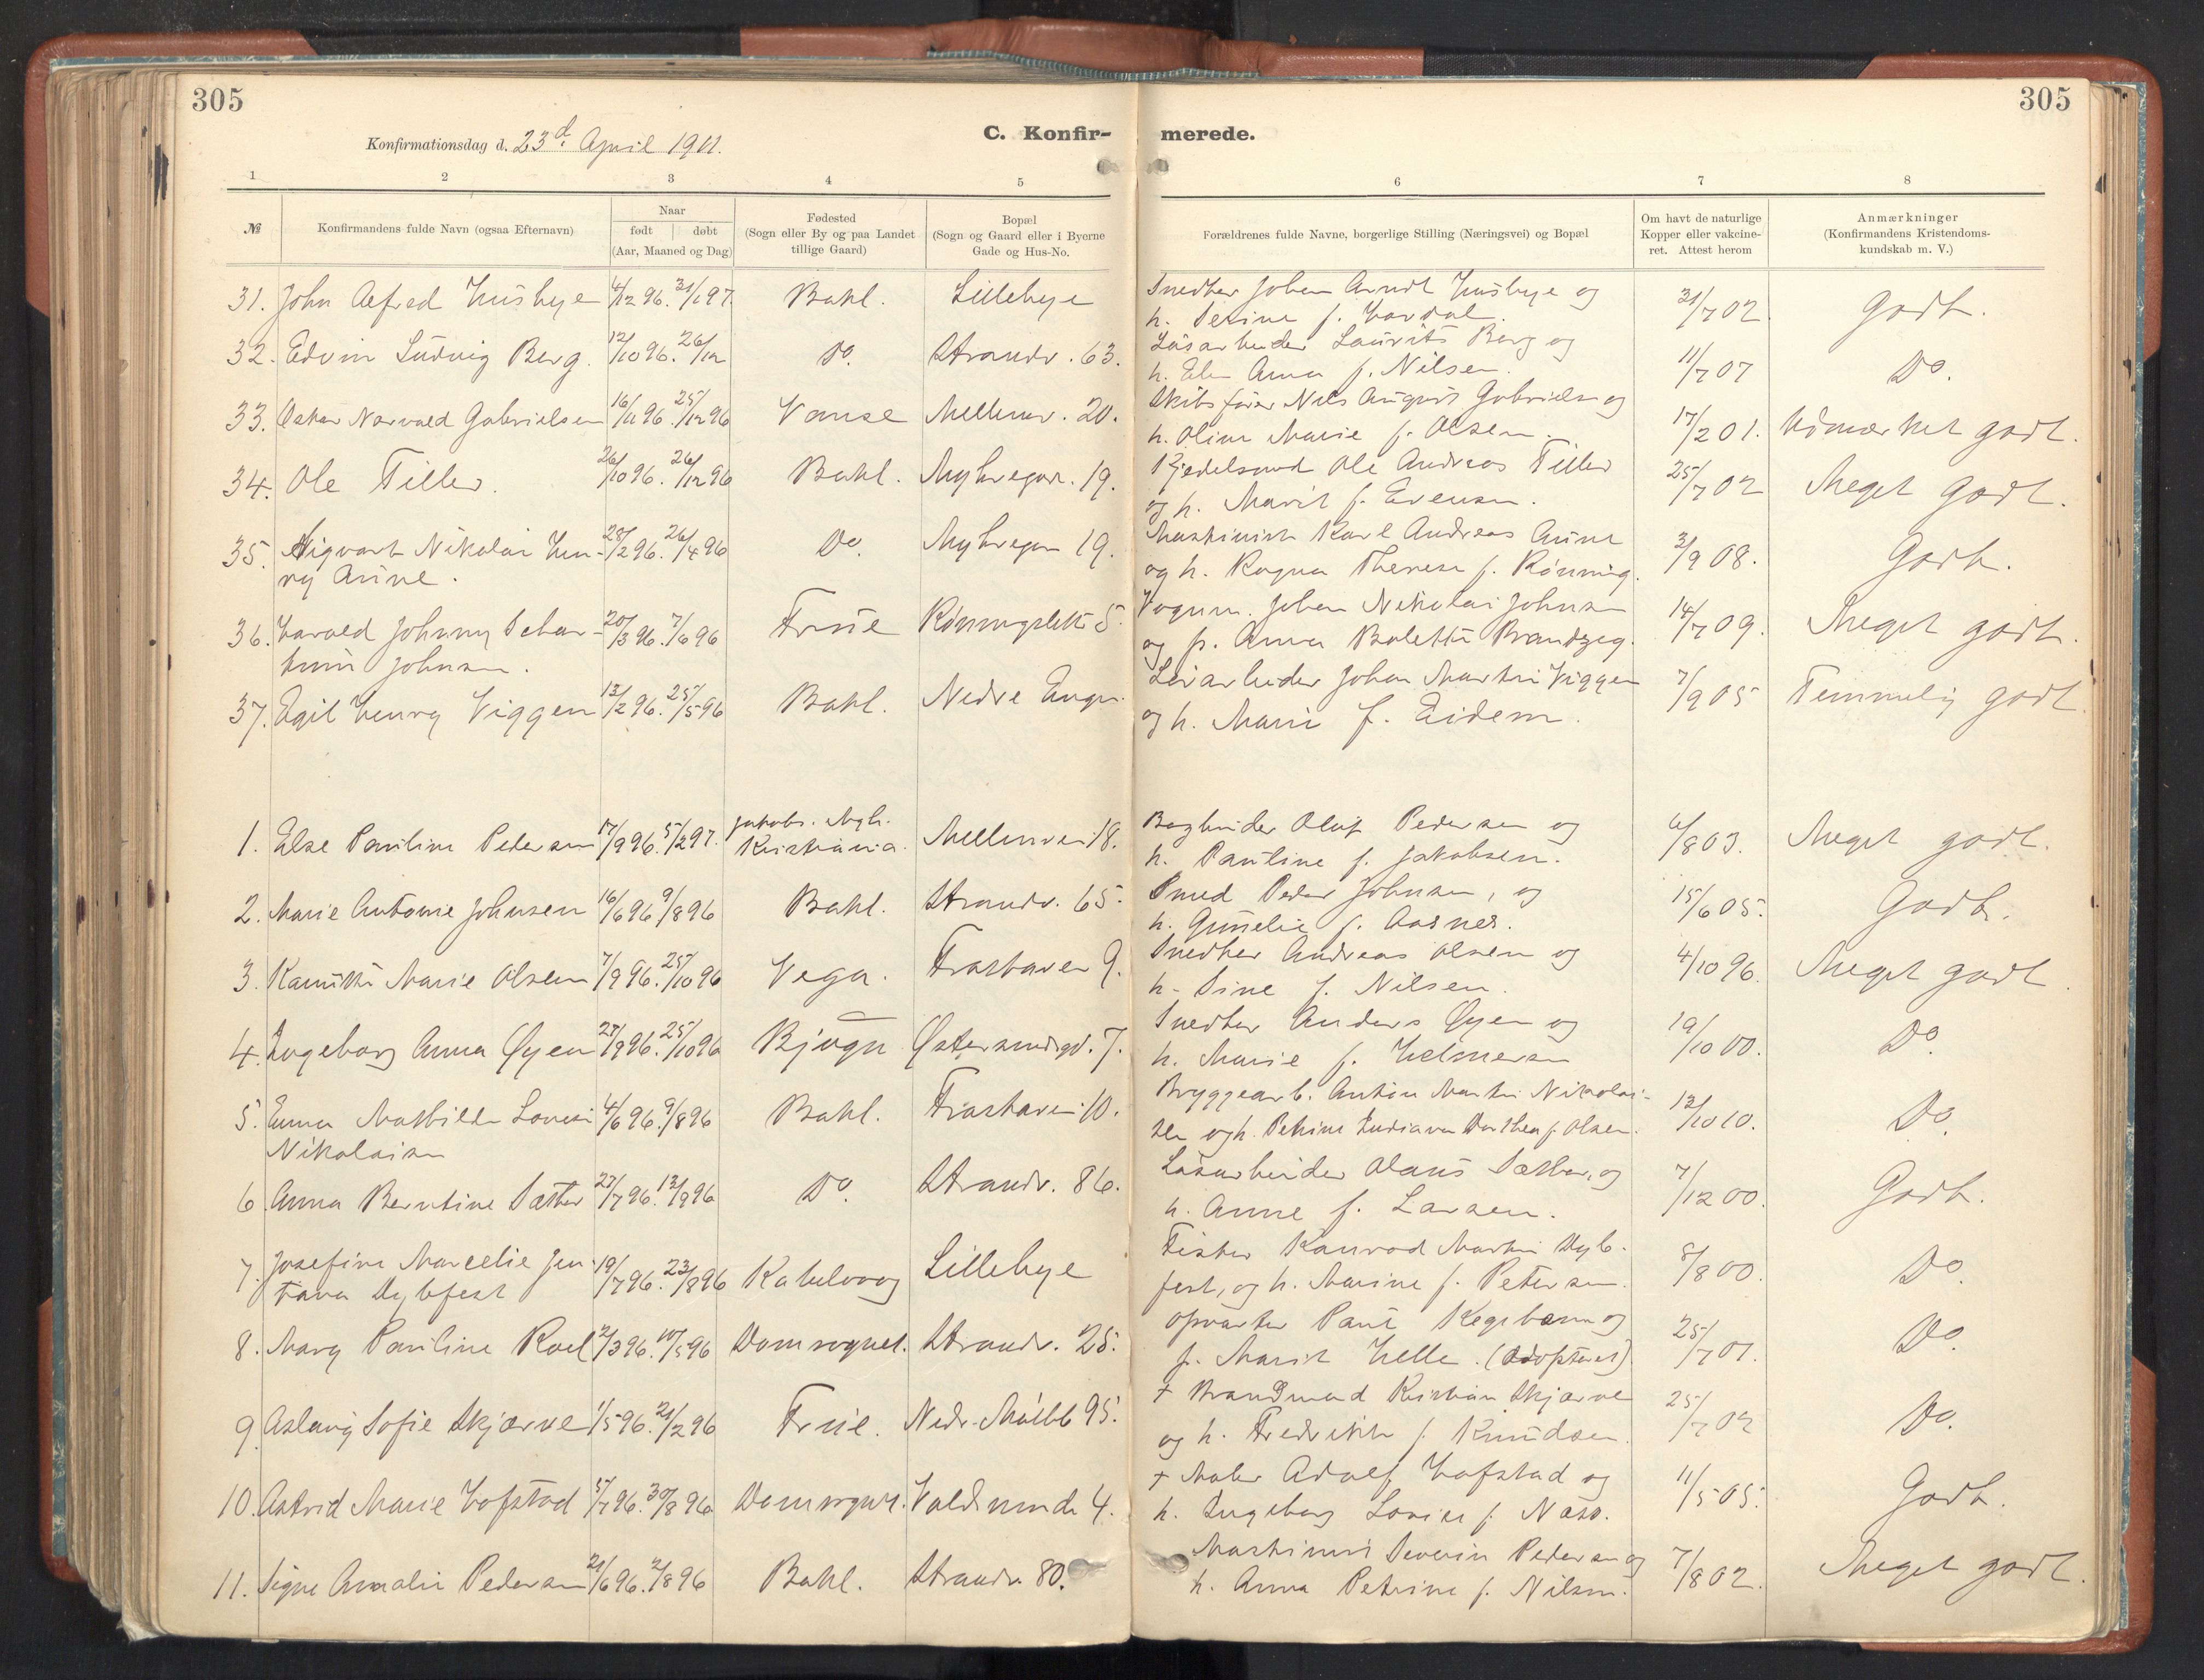 305
305
Konfirmationsdag d. 23d. April 1911.
C. Konfirmerede.
1 2 3 4 5 6 7 8
№
Konfirmandens fulde Navn (ogsaa Efternavn)
Naar
født | døbt
(Aar, Maaned og Dag)
Fødested
(Sogn eller By og paa Landet
tillige Gaard)
Bopæl
(Sogn og Gaard eller i Byerne
Gade og Hus-No.
Forældrenes fulde Navne, borgerlige Stilling (Næringsvei) og Bopæl
Om havt de naturlige
Kopper eller vakcine-
ret. Attest herom
Anmærkninger
(Konfirmandens Kristendoms-
kundskab m. V.)
31. John Alfred Husbye 4/12 96. 31/1 97. Bakl. Lillebye Snedker Johan Arndt Husbye og 31/7 02. Godt.
h. Serine f. Hardal.
32. Edvin Ludvig Berg. 12/10 96. 26/12 Do. Strandv. 63. Løsarbeider Laurits Berg og 11/7 07 Do.
h. Anna f. Nilsen.
33. Oskar Norvald Gabrielsen 16/11 96. 25/12 96 Vanse Mellemv. 20. Skibsfører Nils August Gabrielsen og 17/2 01. Udmærket godt.
h. Oline Marie f. Olsen.
34. Ole Tiller. 26/10 96. 26/12 96 Bakl. Nyhregar. 19. Kjedelsmed Ole Andreas Tiller 25/7 02 Meget godt.
og h. Marit f. Evensen.
35. Sigvart Nikolai Hen- 28/2 96. 26/4 96 Do. 19. Maskinist Karl Andreas Aune 3/9 08. Godt.
ry Aune. og h. Ragna Therese f. Rønning.
36. Harald Johnny 20/3 96. 7/6 96 Frue Rønningsletta 5. Vognm. Johan Nikolai Johnsen 14/7 09. Meget godt.
Johnsen. og f. Anna Bolette Brandzeg.
37. Egil Henry Viggen 13/2 96. 25/5 96 Bakl. Nedre Løsarbeider Johan Martin Viggen 7/9 05 Temmelig godt.
og h. Marie f. Eidem.
1. Else Pauline Pedersen 17/9 96. 5/2 97. Jakobs. Kristiania. Mellemvei 18. Bogbinder Oluf Pedersen og 6/8 03. Meget godt.
h. Pauline f. Jakobsen.
2. Marie Antonie Johnsen 16/6 96 9/8 96 Bakl. Strandv. 65. Smed Peder Johnsen, og 15/6 05. Godt.
h. Gunelie f. Aasnes.
3. Marie Olsen 7/9 96. 25/10 96 Vega. Frostaven 9. Snedker Andreas Olsen og 4/10 96. Meget godt.
h. Sine f. Nilsen.
4. Ingeborg Anna Øyen 27/9 96. 25/10 96 Bjugn Østersundsgd. 7. Snedker Anders Øyen og 19/10 00. Do.
h. Marie f. Helmersen
5. Emma Mathilde Lovise 4/6 96. 9/8 96 Bakl. Frostaven 10. Bryggearb. Anton Martin Nikolai- 12/10 10. Do.
Nikolaisen sen og h. Petrine Indiana Dorthea f. Olsen.
6. Anna Berntine Sæther 27/7 96. 13/9 96 Do. Strandv. 86. Løsarbeider Olaus Sæther, og 7/12 00. Godt.
h. Anne f. Larsen.
7. Josefine Marcelie Jen- 19/7 96. 23/8 96 Kabelvaag Lillebye Fisker Konrad Martin Dyb- 8/8 00. Do.
tava Dybfest fest, og h. Marine f. Petersen.
8. Mary Pauline Roel 2/3 96. 10/5 96 Domsognet. Strandv. 25. Opvarter Paul og 25/7 01. Do.
f. Marit Helle. (Adopteret)
9. Aslaug Sofie Skjærve 1/5 96. 21/2 96 Frue. Nedr. Møllb 95. † Brandmand Kristian Skjærve 25/7 02 Do.
og h. Fredrikke f. Knudsen.
10. Astrid Marie Hofstad 5/7 96. 30/8 96 Domsognet. 4. † Maler Adolf Hofstad og 11/5 05. Godt.
h. Ingeborg Lovise f. Næss.
11. Signe Amalie Pedersen 21/6 96. 2/8 96 Bakl. Strandv. 80. Maskinist Severin Pedersen og 7/8 02. Meget godt.
h. Anna Petrine f. Nilsen.